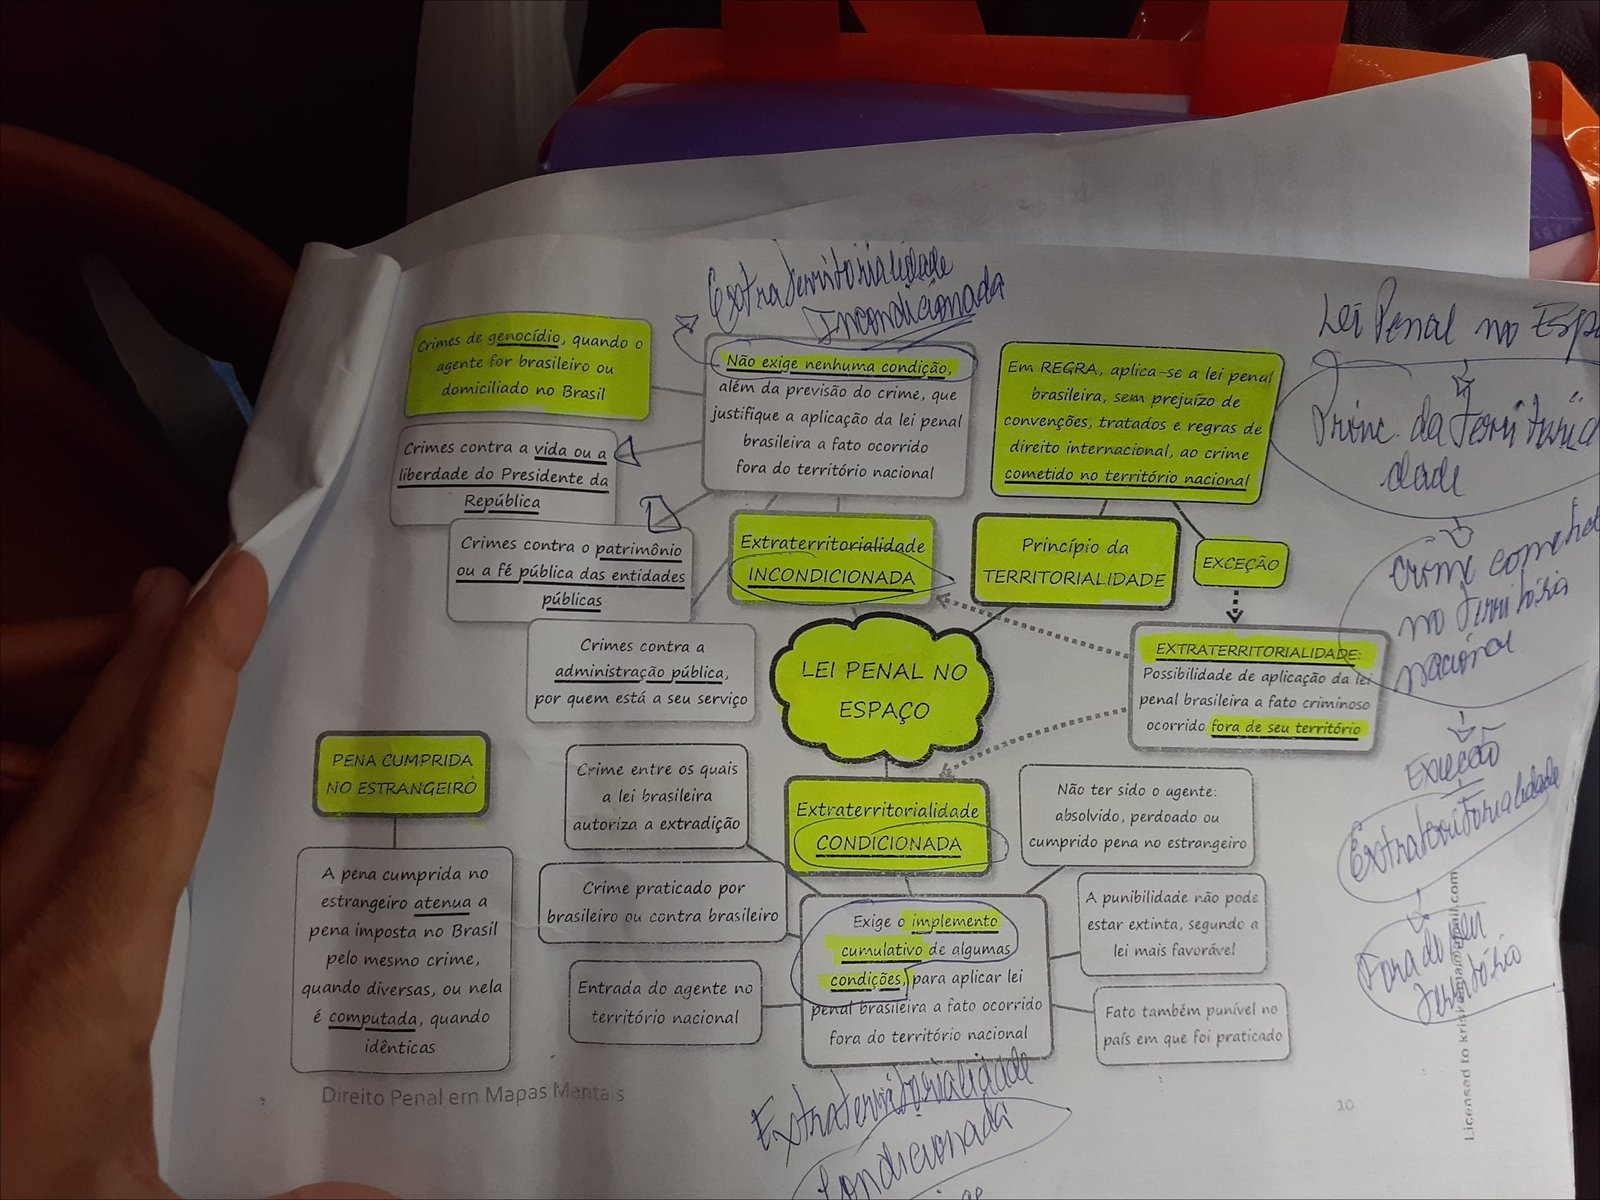 Extraterritorialidade
Incondicionada
Crimes de genocídio, quando o
agente for brasileiro ou
domiciliado no Brasil
Crimes contra a vida ou a
liberdade do Presidente da
República
Crimes contra o patrimônio
ou a fé pública das entidades
públicas
Crimes contra a
administração pública,
por quem está a seu serviço
Não exige nenhuma condição,
além da previsão do crime, que
justifique a aplicação da lei penal
brasileira a fato ocorrido
fora do território nacional
Extraterritorialidade
INCONDICIONADA
Em REGRA, aplica-se a lei penal
brasileira, sem prejuízo de
convenções, tratados e regras de
direito internacional, ao crime
cometido no território nacional
Princípio da
TERRITORIALIDADE
EXCEÇÃO
EXTRATERRITORIALIDADE:
Possibilidade de aplicação da lei
penal brasileira a fato criminoso
ocorrido fora de seu território
LEI PENAL NO
ESPAÇO
PENA CUMPRIDA
NO ESTRANGEIRO
A pena cumprida no
estrangeiro atenua a
pena imposta no Brasil
pelo mesmo crime,
quando diversas, ou nela
é computada, quando
idênticas
Crime entre os quais
a lei brasileira
autoriza a extradição
Crime praticado por
brasileiro ou contra brasileiro
Entrada do agente no
território nacional
Extraterritorialidade
CONDICIONADA
Exige o implemento
cumulativo de algumas
condições, para aplicar lei
penal brasileira a fato ocorrido
fora do território nacional
Não ter sido o agente:
absolvido, perdoado ou
cumprido pena no estrangeiro
A punibilidade não pode
estar extinta, segundo a
lei mais favorável
Fato também punível no
país em que foi praticado
Lei Penal no Espa
Princ. da Territoria
dade
Crime cometido
no território
nacional
Exceção
Extraterritorialidade
Fora do seu
território
Extraterritorialidade
Condicionada
Direito Penal em Mapas Mentais
10
Licensed to